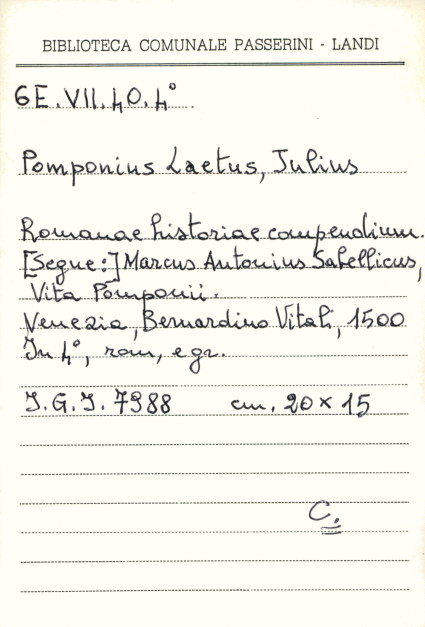 BIBLIOTECA COMUNALE PASSERINI - LANDI
6E.VII.40.4°
Pomponius Laetus, Julius
Romanae historiae compendium.
[Segue:] Marcus Antonius Sabellicus,
Vita Pomponii.
Venezia, Bernardino Vitali, 1500
In 4°, rom, e gr.
I.G.I. 7988 cm. 20 x 15
C.